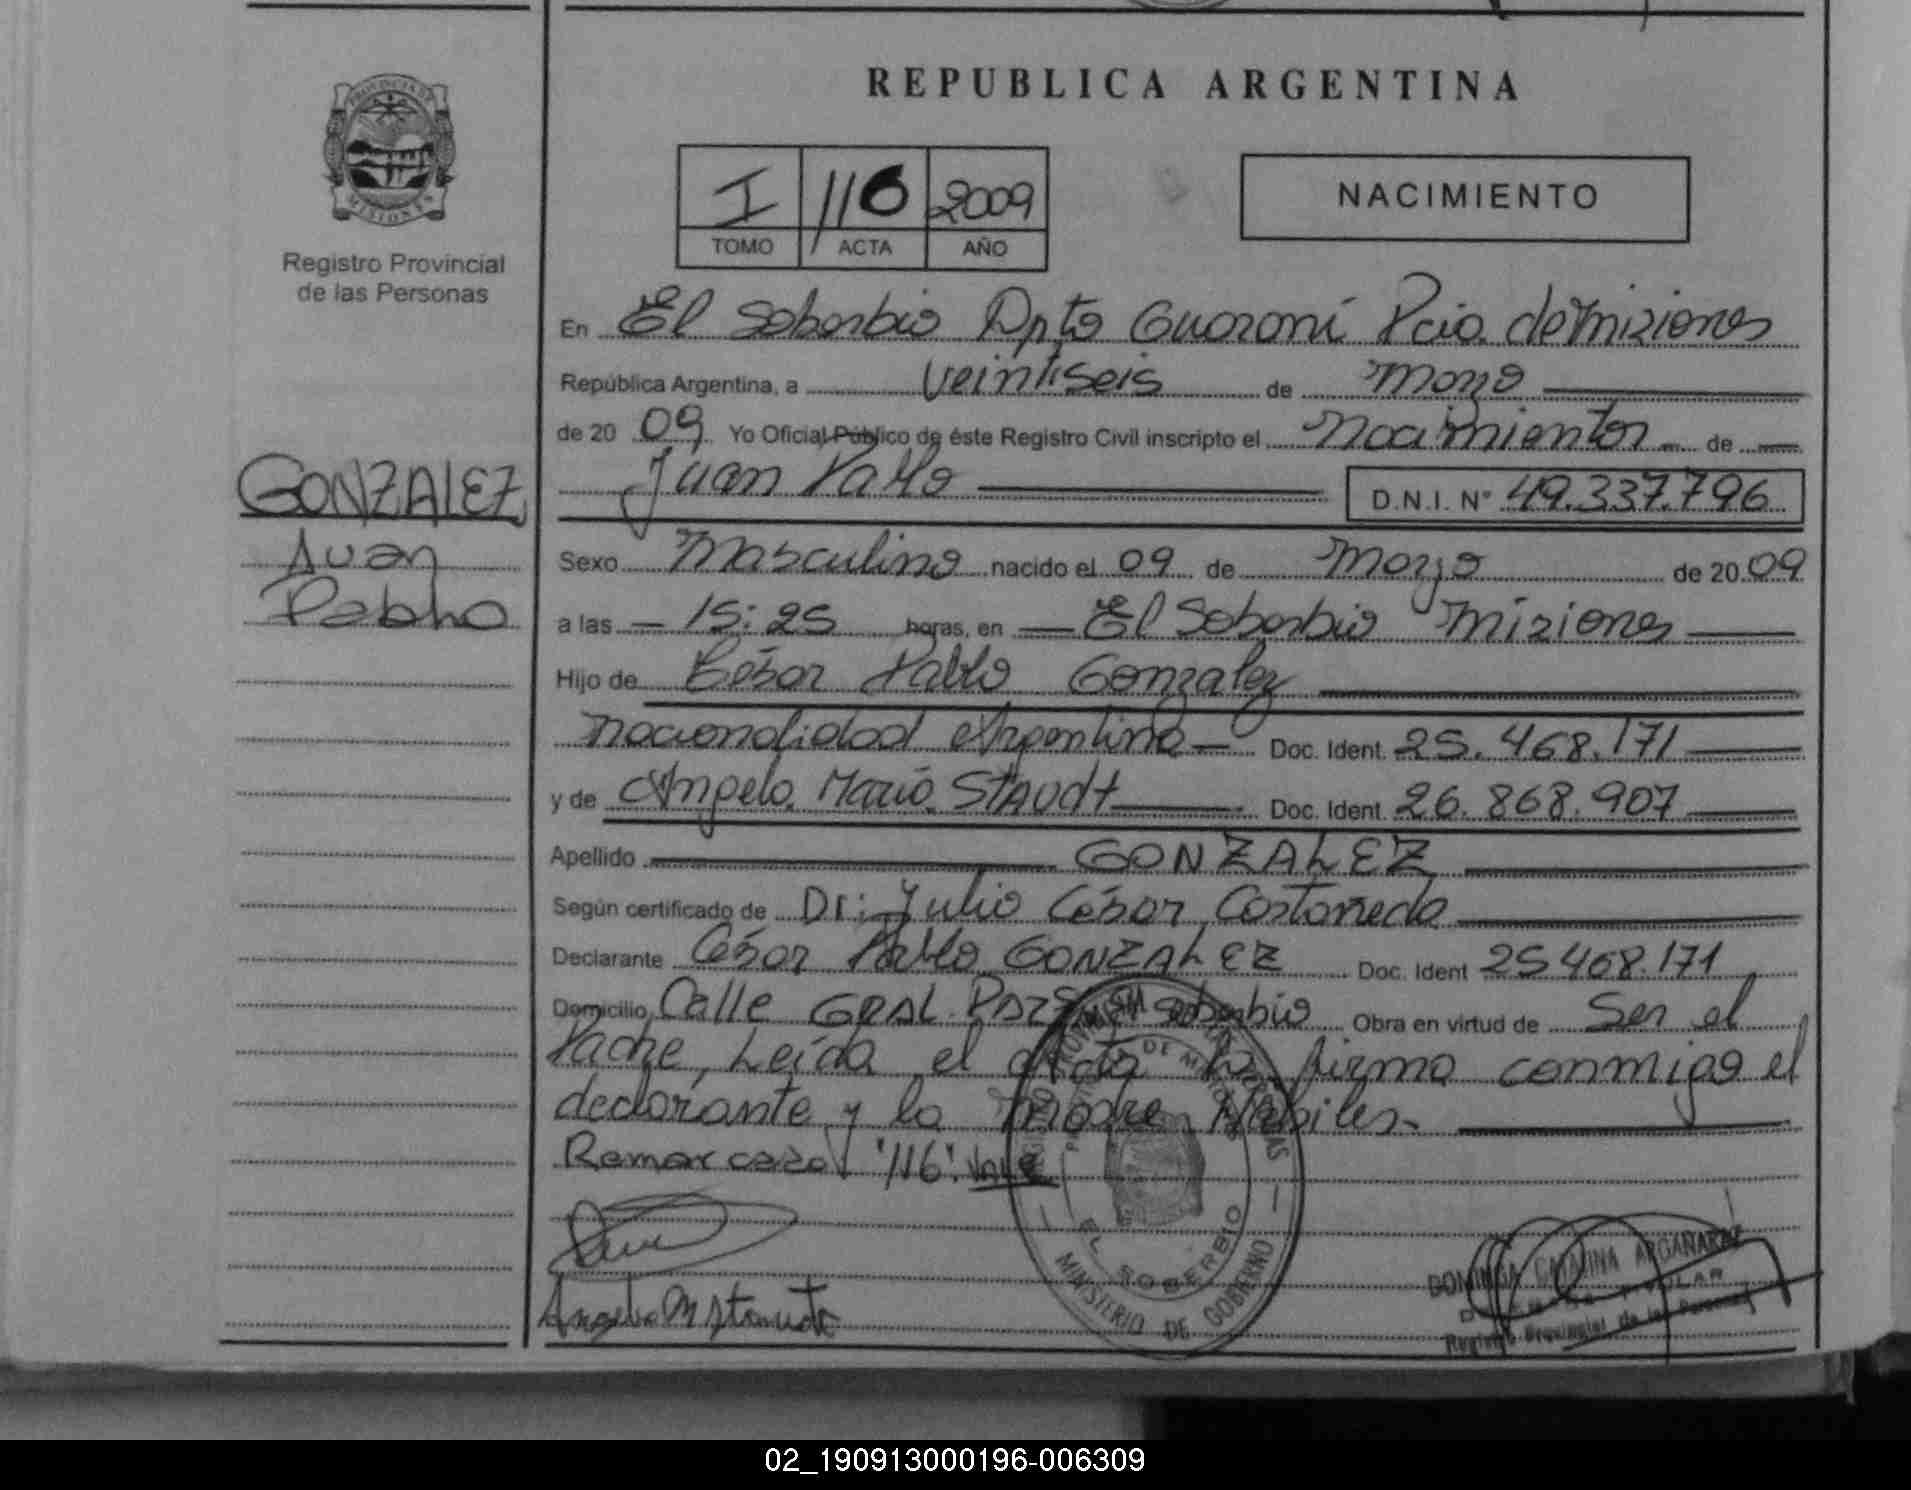 REPUBLICA ARGENTINA
PROVINCIA DE
MISIONES
Registro Provincial
de las Personas
I 116 2009
TOMO ACTA AÑO
NACIMIENTO
GONZALEZ
Juan
Pablo
En El Soberbio Dpto Guaraní Pcia. de Misiones
República Argentina, a veintiseis de Marzo
de 2009 Yo Oficial Público de éste Registro Civil inscripto el Nacimiento de
Juan Pablo D.N.I. N° 49.337.796
Sexo Masculino nacido el 09 de Marzo de 2009
a las 15:25 horas, en El Soberbio Misiones
Hijo de César Pablo Gonzalez
nacionalidad Argentina Doc. Ident. 25.468.171
y de Angela Maria Staudt Doc. Ident. 26.868.907
Apellido GONZALEZ
Según certificado de Dr: Julio César Castañeda
Declarante César Pablo GONZALEZ Doc. Ident 25468.171
Domicilio Calle GRAL. PAZ Soberbio Obra en virtud de Ser el
Padre, Leída el Acta la firma conmigo el
declarante y la Madre Habiles.
Remarcado "116". Vale
Angela M Staudt
EL SOBERBIO
MINISTERIO DE GOBIERNO
DOMINGA CATALINA ARGAÑARAZ
TITULAR
Registro Provincial de las Personas
02_190913000196-006309